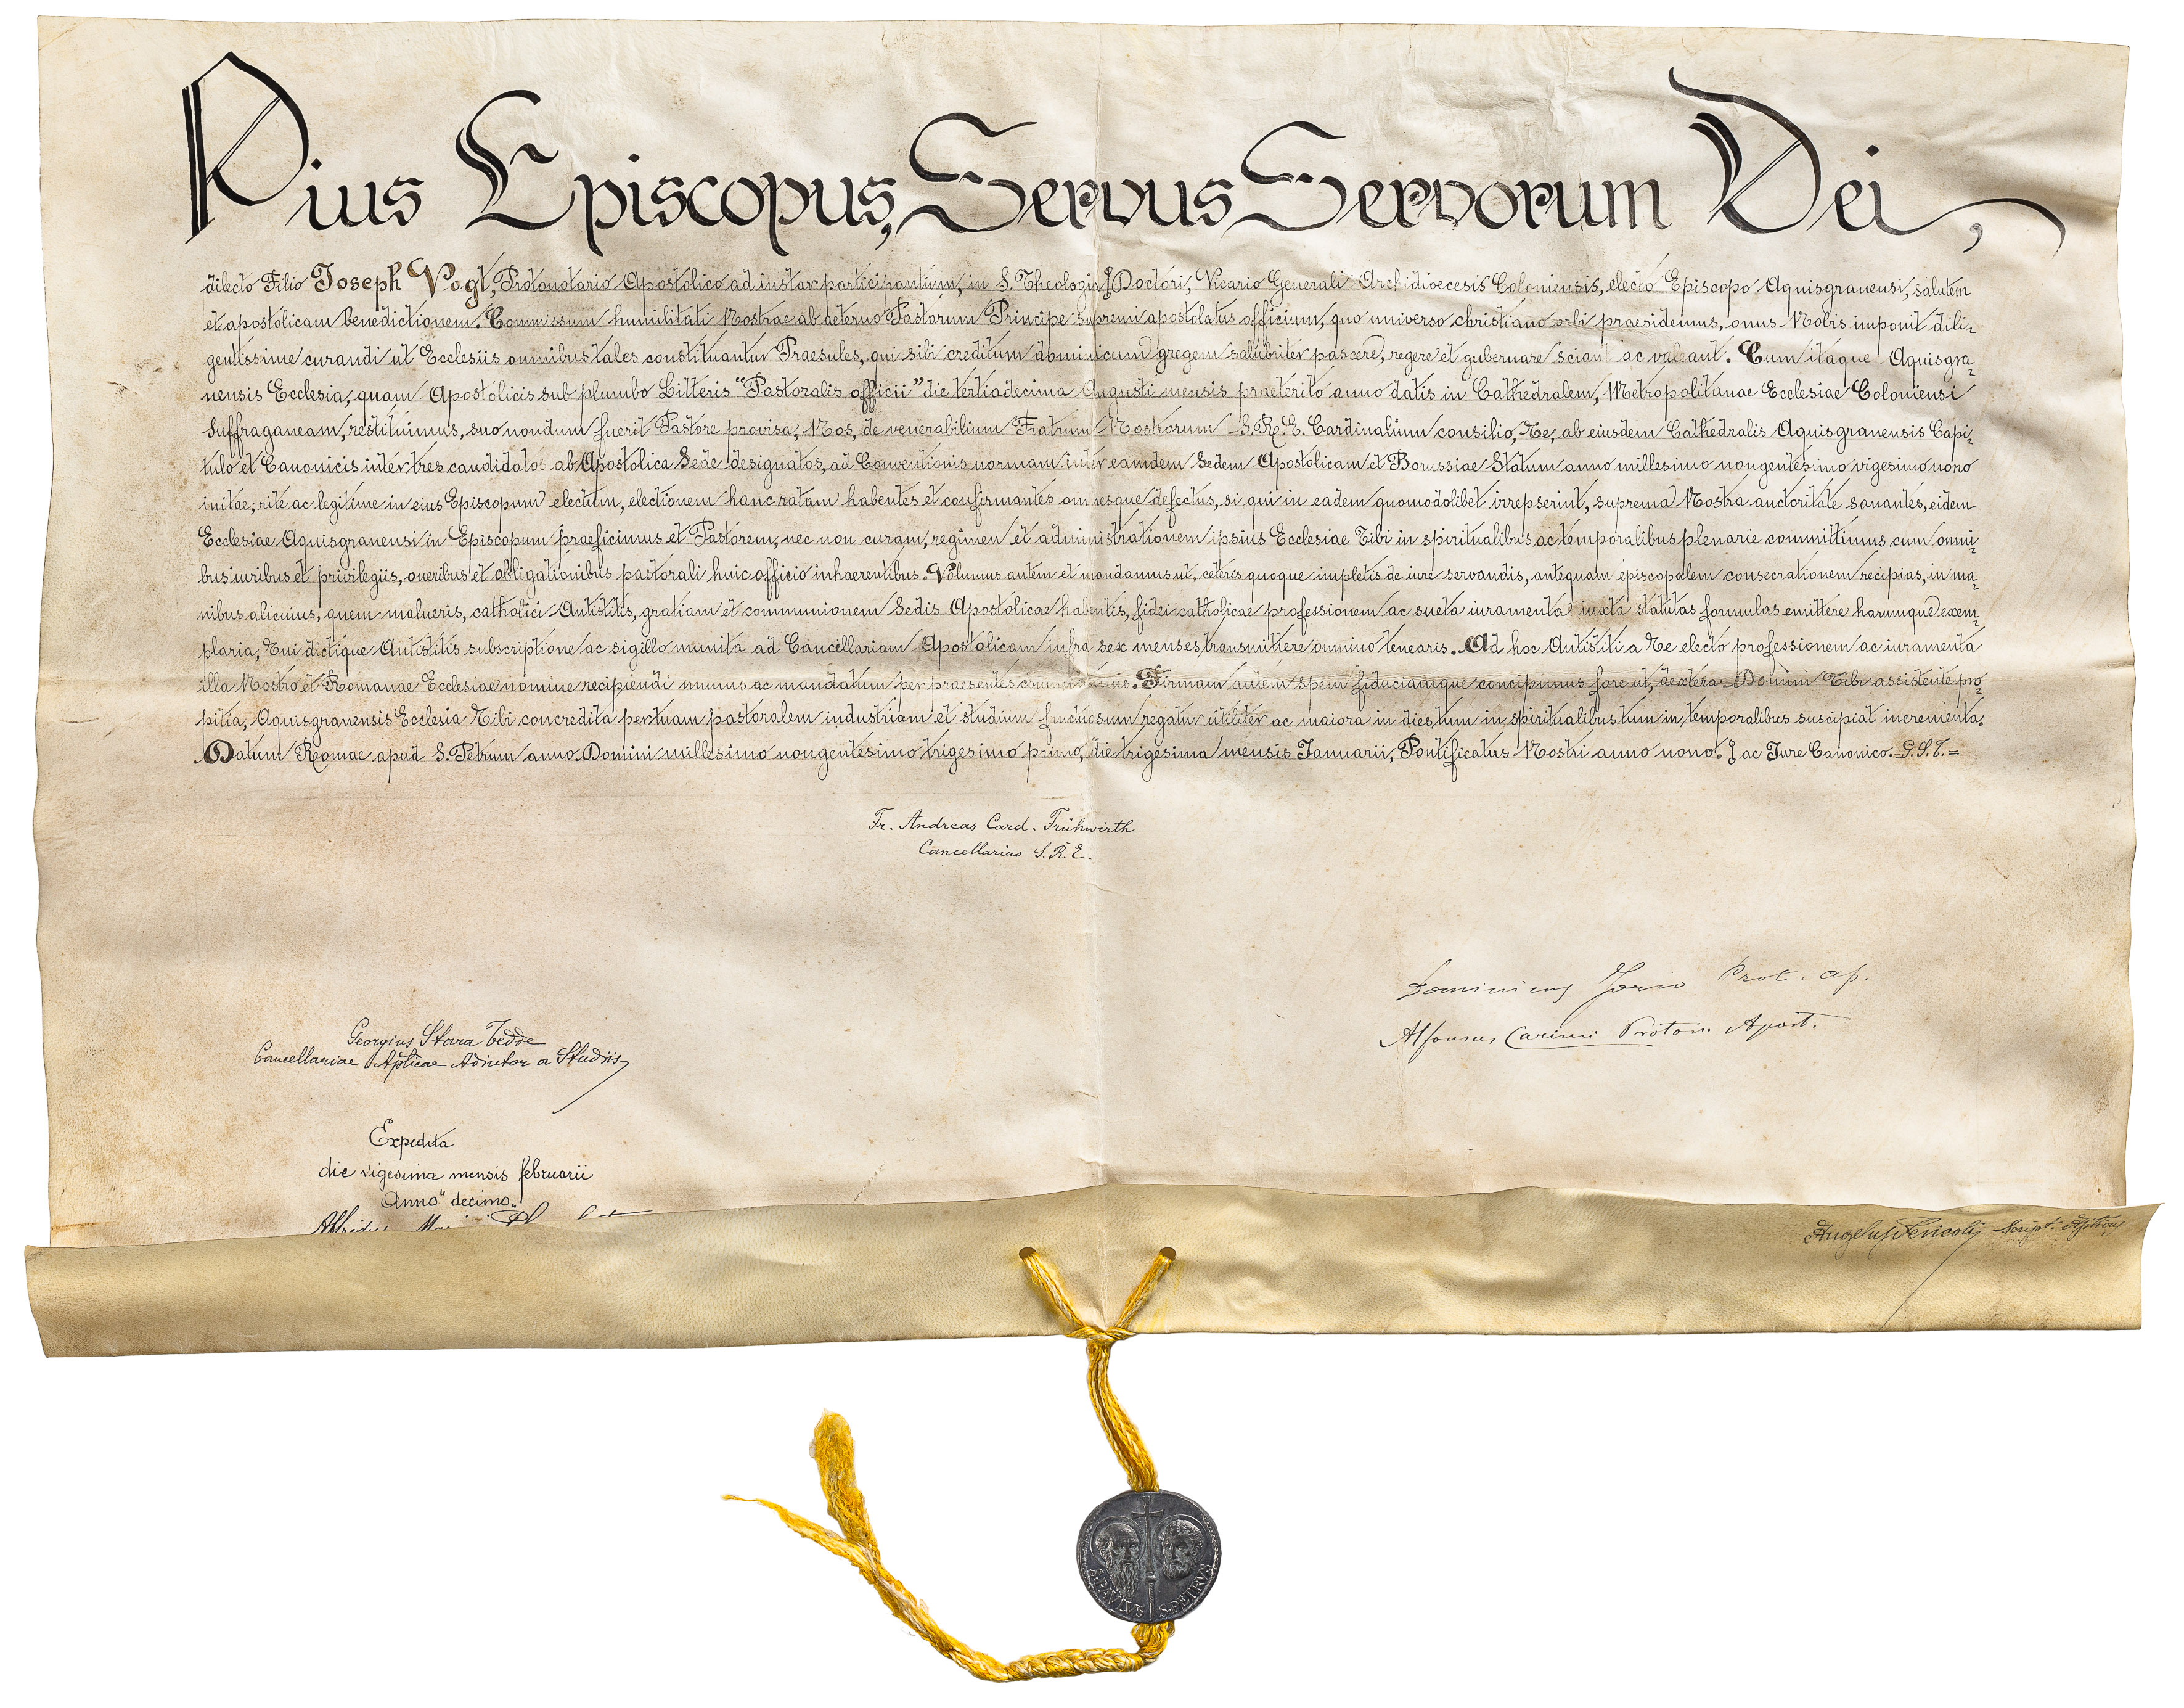 Pius Episcopus, Servus Servorum Dei,
dilecto Filio Joseph Vogt, Protonotario Apostolico ad instar participantium, in S. Theologia ʃ Doctori, Vicario Generali Archidioecesis Coloniensis, electo Episcopo Aquisgranensi, salutem
et apostolicam benedictionem. Commissum humilitati Nostrae ab aeterno Pastorum Principe supremi apostolatus officium, quo universo christiano orbi praesidemus, onus Nobis imponit dili-
gentissime curandi ut Ecclesiis omnibus tales constituantur Praesules, qui sibi creditum dominicum gregem salubriter pascere, regere et gubernare sciant ac valeant. Cum itaque Aquisgra-
nensis Ecclesia, quam Apostolicis sub plumbo Litteris "Pastoralis officii" die tertiadecima Augusti mensis praeterito anno datis in Cathedralem, Metropolitanae Ecclesiae Coloniensi
Suffraganeam, restituimus, suo nondum fuerit Pastore provisa, Nos, de venerabilium Fratrum Nostrorum S. R. E. Cardinalium consilio, Te, ab eiusdem Cathedralis Aquisgranensis Capi-
tulo et Canonicis inter tres candidatos ab Apostolica Sede designatos, ad Conventionis normam inter eamdem Sedem Apostolicam et Borussiae Statum anno millesimo nongentesimo vigesimo nono
initae, rite ac legitime in eius Episcopum electum, electionem hanc ratam habentes et confirmantes omnesque defectus, si qui in eadem quomodolibet irrepserint, suprema Nostra auctoritate sanantes, eidem
Ecclesiae Aquisgranensi in Episcopum praeficimus et Pastorem, nec non curam, regimen et administrationem ipsius Ecclesiae Tibi in spiritualibus ac temporalibus plenarie committimus cum omni-
bus iuribus et privilegiis, oneribus et obligationibus pastorali huic officio inhaerentibus. Volumus autem et mandamus ut, ceteris quoque impletis de iure servandis, antequam episcopalem consecrationem recipias, in ma-
nibus alicuius, quem malueris, catholici Antistitis, gratiam et communionem Sedis Apostolicae habentis, fidei catholicae professionem ac sueta iuramenta iuxta statutas formulas emittere harumque exem-
plaria, Tui dictique Antistitis subscriptione ac sigillo munita ad Cancellariam Apostolicam infra sex menses transmittere omnino tenearis. Ad hoc Antistiti a Te electo professionem ac iuramenta
illa Nostro et Romanae Ecclesiae nomine recipiendi munus ac mandatum per praesentes committimus. Firmam autem spem fiduciamque concipimus fore ut, dextera Domini Tibi assistente pro-
pitia, Aquisgranensis Ecclesia Tibi concredita per tuam pastoralem industriam et studium fructuosum regatur utiliter ac maiora in dies tum in spiritualibus tum in temporalibus suscipiat incrementa.
Datum Romae apud S. Petrum anno Domini millesimo nongentesimo trigesimo primo, die trigesima mensis Januarii, Pontificatus Nostri anno nono. ʃ ac Jure Canonico. = G.S.T. =
Fr. Andreas Card. Frühwirth
Cancellarius S. R. E.
Dominicus Jorio Prot. ap.
Alfonsus Carinci Proton. Apost.
Georgius Stara Tedde
Cancellariae Aplicae Adiutor a Studiis
Expedita
die vigesima mensis februarii
Anno decimo.
Alfridus
Angelus Pericoli Script. Aplicus
S·PAVLVS S·PETRVS